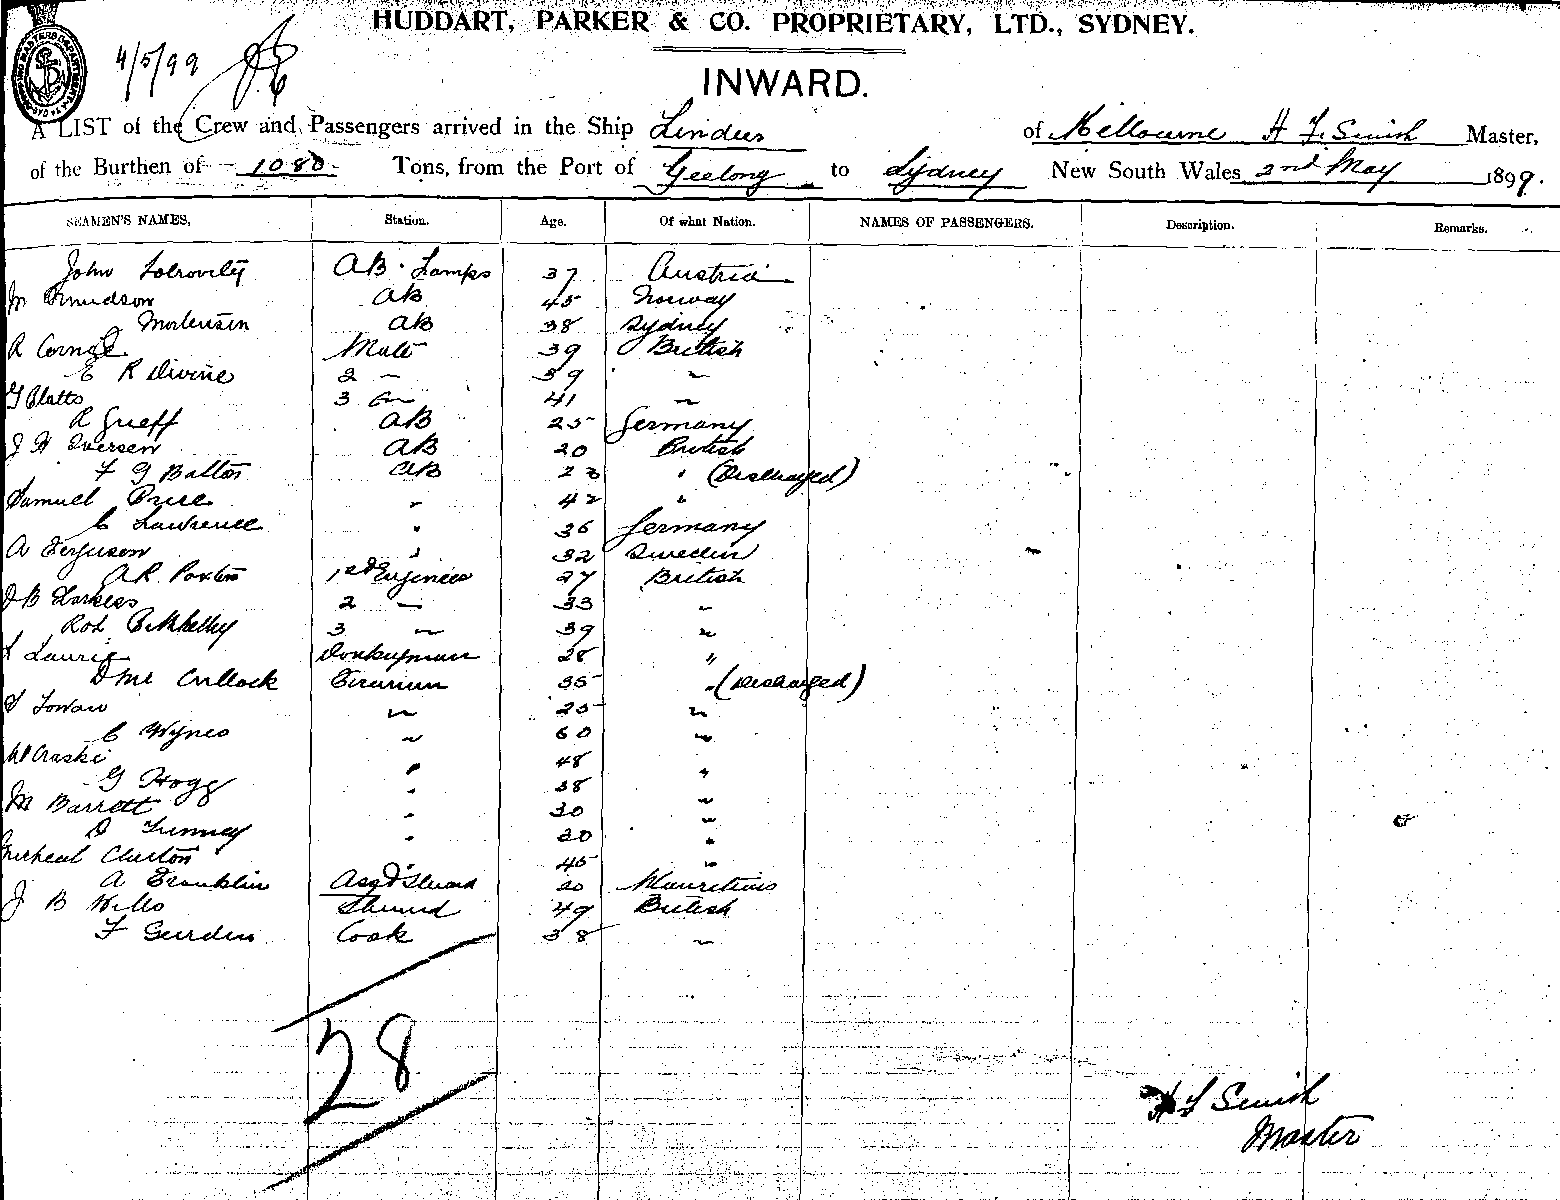 HUDDART, PARKER & CO. PROPRIETARY, LTD., SYDNEY.
4/5/99
INWARD.
A LIST of the Crew and Passengers arrived in the Ship Lindus of Melbourne H F Smith Master,
of the Burthen of 1080 Tons, from the Port of Geelong to Sydney New South Wales 2nd May 1899.
SEAMEN'S NAMES, Station. Age. Of what Nation. NAMES OF PASSENGERS. Description. Remarks.
John AB Lamps 37 Austria
M AB 45 Norway
Mortensen AB 38 Sydney
R Mate 39 British
E R Divine 2 " 39 "
G Platts 3 " 41 "
R Grueff AB 25 Germany
J H Iversen AB 20 British
F G Balton AB 23 " (Discharged)
Samuel Price " 42 "
C Lawrence " 36 Germany
A Ferguson " 32 Sweden
A R Paxton 1st Engineer 27 British
J B Harkess 2 " 33 "
Rob 3 " 39 "
Laurie Donkeyman 28 "
D Mc Cullock Fireman 35 " (Discharged)
" 25 "
C Wynes " 60 "
W Craske " 48 "
G Hogg " 38 "
M Barrett " 30 "
D " 30 "
Micheal Clurton " 45 "
A Franklin Steward 20 Mauritius
J B Wills Steward 49 British
F Cook 38 "
28
H F Smith
Master